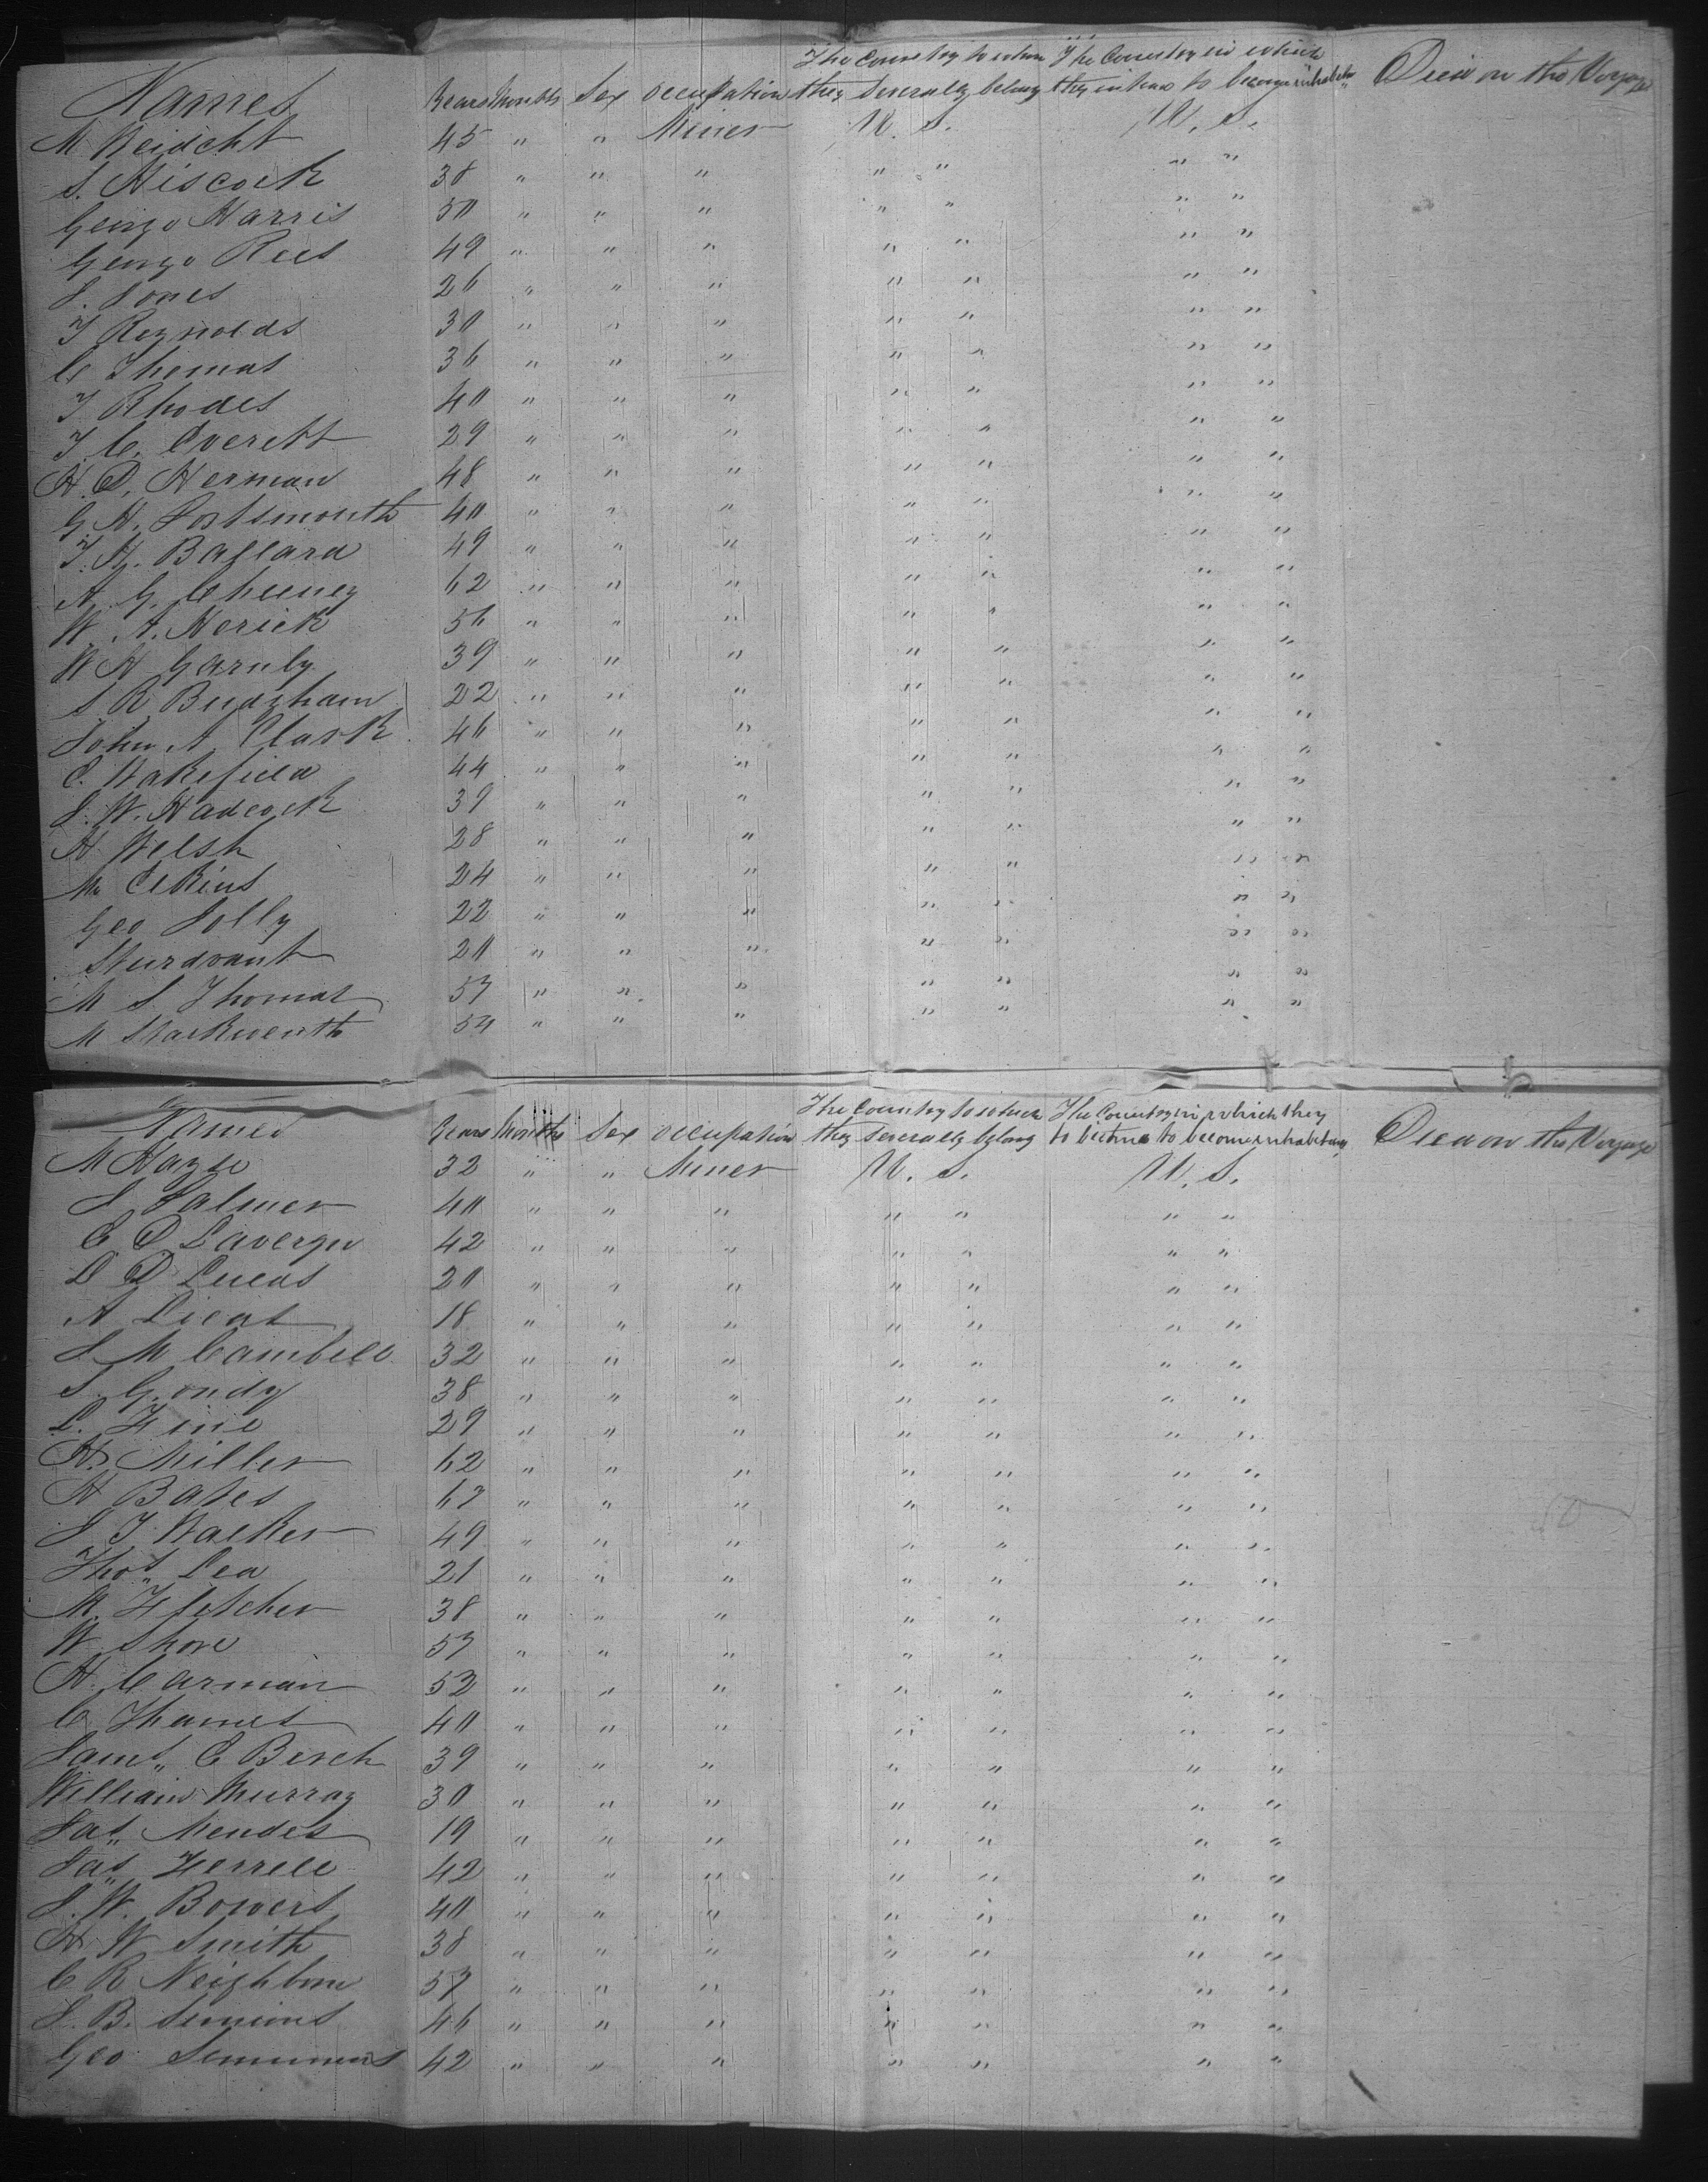 Names Years Months Sex Occupation The Country to whom they severally belong The Country in which they intend to become inhabitants Died on the Voyage
M Neidcht 45 " " Miner U. S. U. S.
S. Hiscock 38 " " " " " " "
George Harris 50 " " " " " " "
George Rees 49 " " " " " " "
J. Jones 26 " " " " " " "
T Reynolds 30 " " " " " " "
C Thomas 36 " " " " " " "
T Rhodes 40 " " " " " " "
T. C. Everett 29 " " " " " " "
H. D. Herman 48 " " " " " " "
G H. Portsmouth 40 " " " " " " "
T. H. Ballard 49 " " " " " " "
A G. Cheeney 62 " " " " " " "
W. A. Herick 56 " " " " " " "
W H Garnly 39 " " " " " " "
S R Budgham 22 " " " " " " "
John A Clark 46 " " " " " " "
C. Wakefield 44 " " " " " " "
J. W. Hadcock 39 " " " " " " "
H Welsh 28 " " " " " " "
M Elkins 24 " " " " " " "
Geo Jolly 22 " " " " " " "
Sturdvant 20 " " " " " " "
M S. Thomas 57 " " " " " " "
M Starkwenth 54 " " " " " " "
Names Years Months Sex Occupation The Country to which they severally belong The Country in which they to become to become inhabitants Died on the Voyage
M Hayse 32 " " Miner U. S. U. S.
J Palmer 40 " " " " " " "
C D Lavergn 42 " " " " " " "
D D Lucas 20 " " " " " " "
A Lucas 18 " " " " " " "
J M Cambell 32 " " " " " " "
S. Gondy 38 " " " " " " "
L. Fine 29 " " " " " " "
H. Miller 62 " " " " " " "
H Bates 67 " " " " " " "
J T Walker 49 " " " " " " "
Thos" Lea 21 " " " " " " "
M. Fletcher 38 " " " " " " "
W. Shore 57 " " " " " " "
H. Carman 52 " " " " " " "
C Thames 40 " " " " " " "
James" E Berch 39 " " " " " " "
William Murray 30 " " " " " " "
Jas" Mendes 19 " " " " " " "
Jas" Ferrell 42 " " " " " " "
J. W. Bowers 40 " " " " " " "
H W Smith 38 " " " " " " "
C R Neighborn 57 " " " " " " "
J. B. Simions 46 " " " " " " "
Geo Semumens 42 " " " " " " "